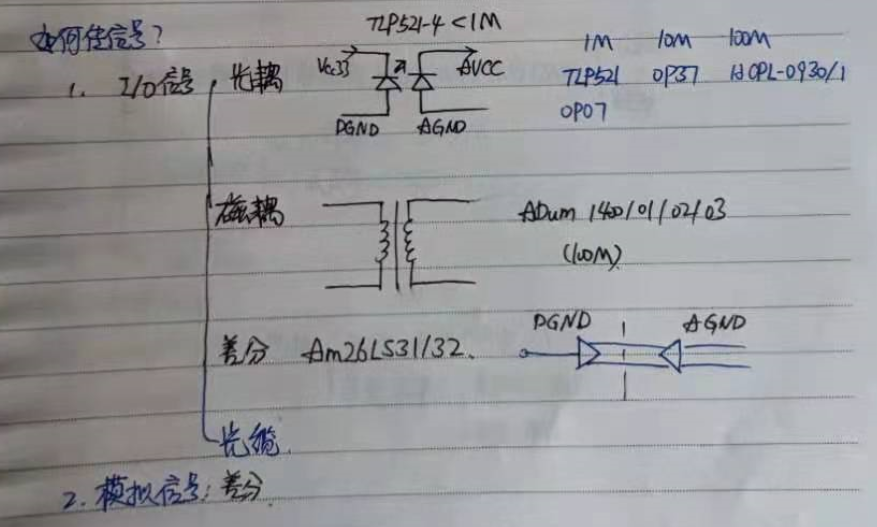 如何传信号?
TLP521-4 <1M
1. I/O信号
光耦 Vcc33 AVCC
DGND AGND
1M 10M 100M
TLP521 OP37 HCPL-0930/1
OP07
磁耦 ADum 1400/01/02/03
(100M)
差分 Am26LS31/32.
DGND AGND
光缆.
2. 模拟信号: 差分.